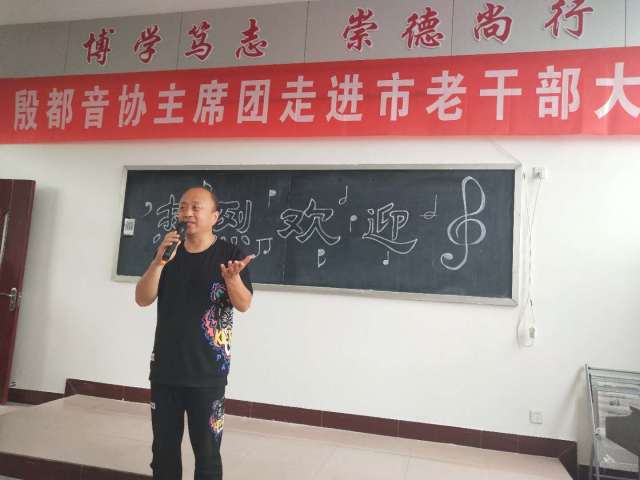 博学笃志 崇德尚行
殷都音协主席团走进市老干部大
热烈欢迎